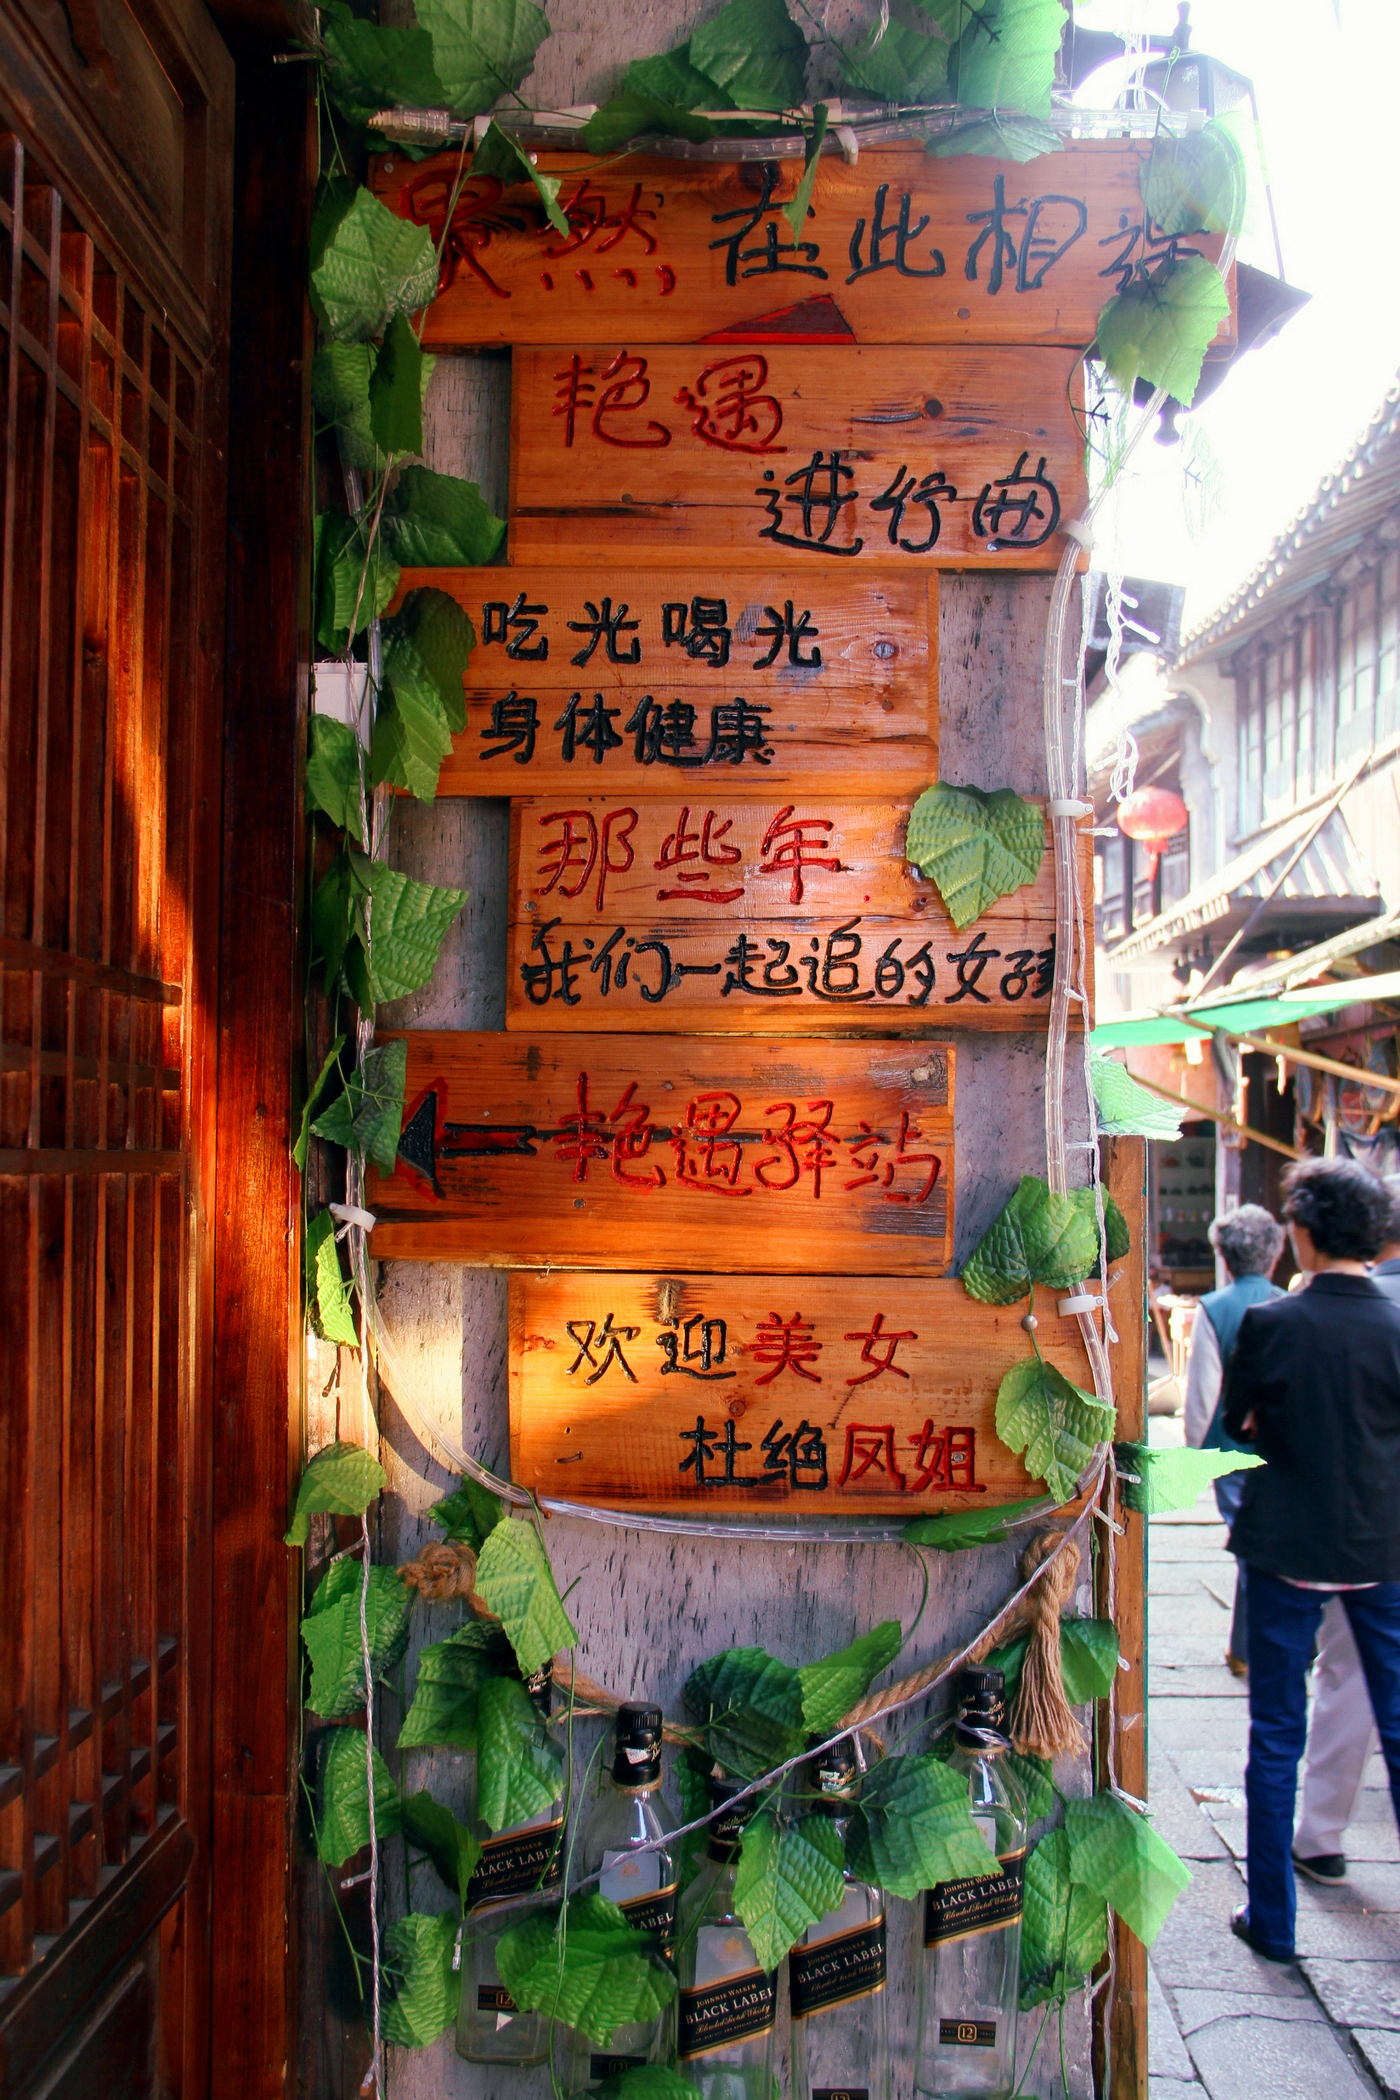 果然 在此相逢
艳遇
进行曲
吃光喝光
身体健康
那些年.
我们一起追的女孩
艳遇驿站
欢迎美女
杜绝凤姐
JOHNNIE WALKER
BLACK LABEL
JOHNNIE WALKER
BLACK LABEL
Blended Scotch Whisky
BLACK LABEL
JOHNNIE WALKER
BLACK LABEL
Blended Scotch Whisky
JOHNNIE WALKER
BLACK LABEL
Blended Scotch Whisky
12
12